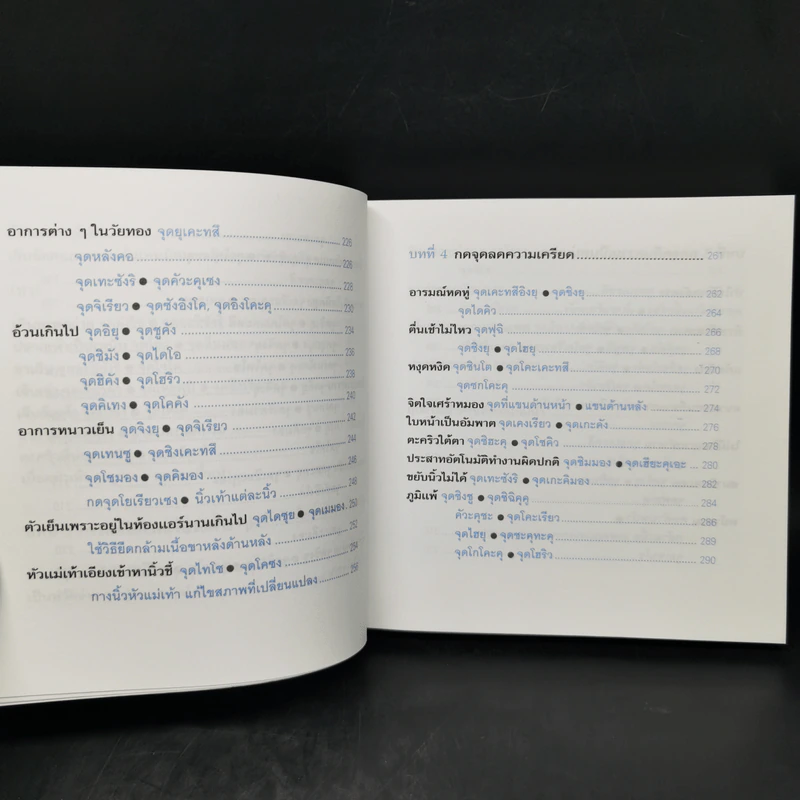 อาการต่าง ๆ ในวัยทอง จุดยุเคะทสึ ........ 226
จุดหลังคอ ........ 228
จุดเทะซังริ ● จุดคัวะคุเชง
จุดจิเรียว ● จุดซังอิงโค, จุดอิงโคะคุ ........ 230
อ้วนเกินไป จุดอิยุ ● จุดชูคัง ........ 234
จุดชิมัง ● จุดไดโอ ........ 236
จุดฮิคัง ● จุดโฮริว ........ 238
จุดคิเทง ● จุดโคคัง ........ 240
อาการหนาวเย็น จุดจิงยุ ● จุดจิเรียว ........ 242
จุดเทนซู ● จุดชิงเคะทสึ ........ 244
จุดโชมอง ● จุดคิมอง ........ 246
กดจุดโยเรียวเซง ● นิ้วเท้าแต่ละนิ้ว ........ 248
ตัวเย็นเพราะอยู่ในห้องแอร์นานเกินไป จุดไดซุย ● จุดเมมอง ........ 250
ใช้วิธียืดกล้ามเนื้อขาหลังด้านหลัง ........ 252
หัวแม่เท้าเอียงเข้าหานิ้วชี้ จุดไทโช ● จุดโคซง ........ 254
กางนิ้วหัวแม่เท้า แก้ไขสภาพที่เปลี่ยนแปลง ........ 256
บทที่ 4 กดจุดลดความเครียด ........ 261
อารมณ์หดหู่ จุดเคะทสึอิงยุ ● จุดชิงยุ ........ 262
จุดไดคิว ........ 264
ตื่นเช้าไม่ไหว จุดฟุจิ ........ 266
จุดชิงยุ ● จุดไฮยุ ........ 268
หงุดหงิด จุดชินโต ● จุดโคะเคะทสึ ........ 270
จุดซกโคะคุ ........ 272
จิตใจเศร้าหมอง จุดที่แขนด้านหน้า ● แขนด้านหลัง ........ 274
ใบหน้าเป็นอัมพาต จุดเคงเรียว ● จุดเกะคัง ........ 276
ตะคริวใต้ตา จุดชิฮะคุ ● จุดโชคิว ........ 278
ประสาทอัตโนมัติทำงานผิดปกติ จุดชิมมอง ● จุดเฮียะคุเอะ ........ 280
ขยับนิ้วไม่ได้ จุดเทะซังริ ● จุดเกะคิมอง ........ 282
ภูมิแพ้ จุดชิงชู ● จุดชิฉิคุคุ ........ 284
คัวะคุซะ ● จุดโคะเรียว ........ 286
จุดไฮยุ ● จุดชะคุทะคุ ........ 289
จุดโกโคะคุ ● จุดโฮริว ........ 290